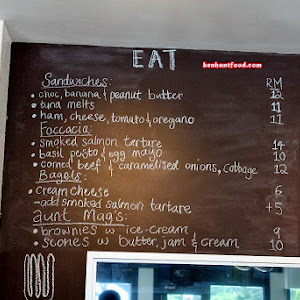 EAT
kenhuntfood.com
Sandwiches: RM
• choc, banana & peanut butter 12
• tuna melts 11
• ham, cheese, tomato & oregano 11
Foccacia:
• smoked salmon tartare 14
• basil pesto & egg mayo 10
• corned beef & caramelised onions, cabbage 12
Bagels:
• cream cheese 6
-add smoked salmon tartare +5
aunt Mag's:
• brownies w ice-cream 9
• scones w butter, jam & cream 10